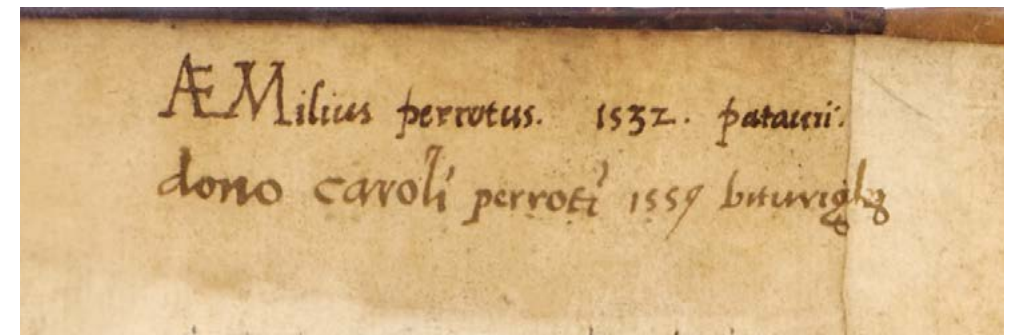 ÆMilius perrotus. 1532. patauii.
dono caroli perroti 1559 biturigibꝫ